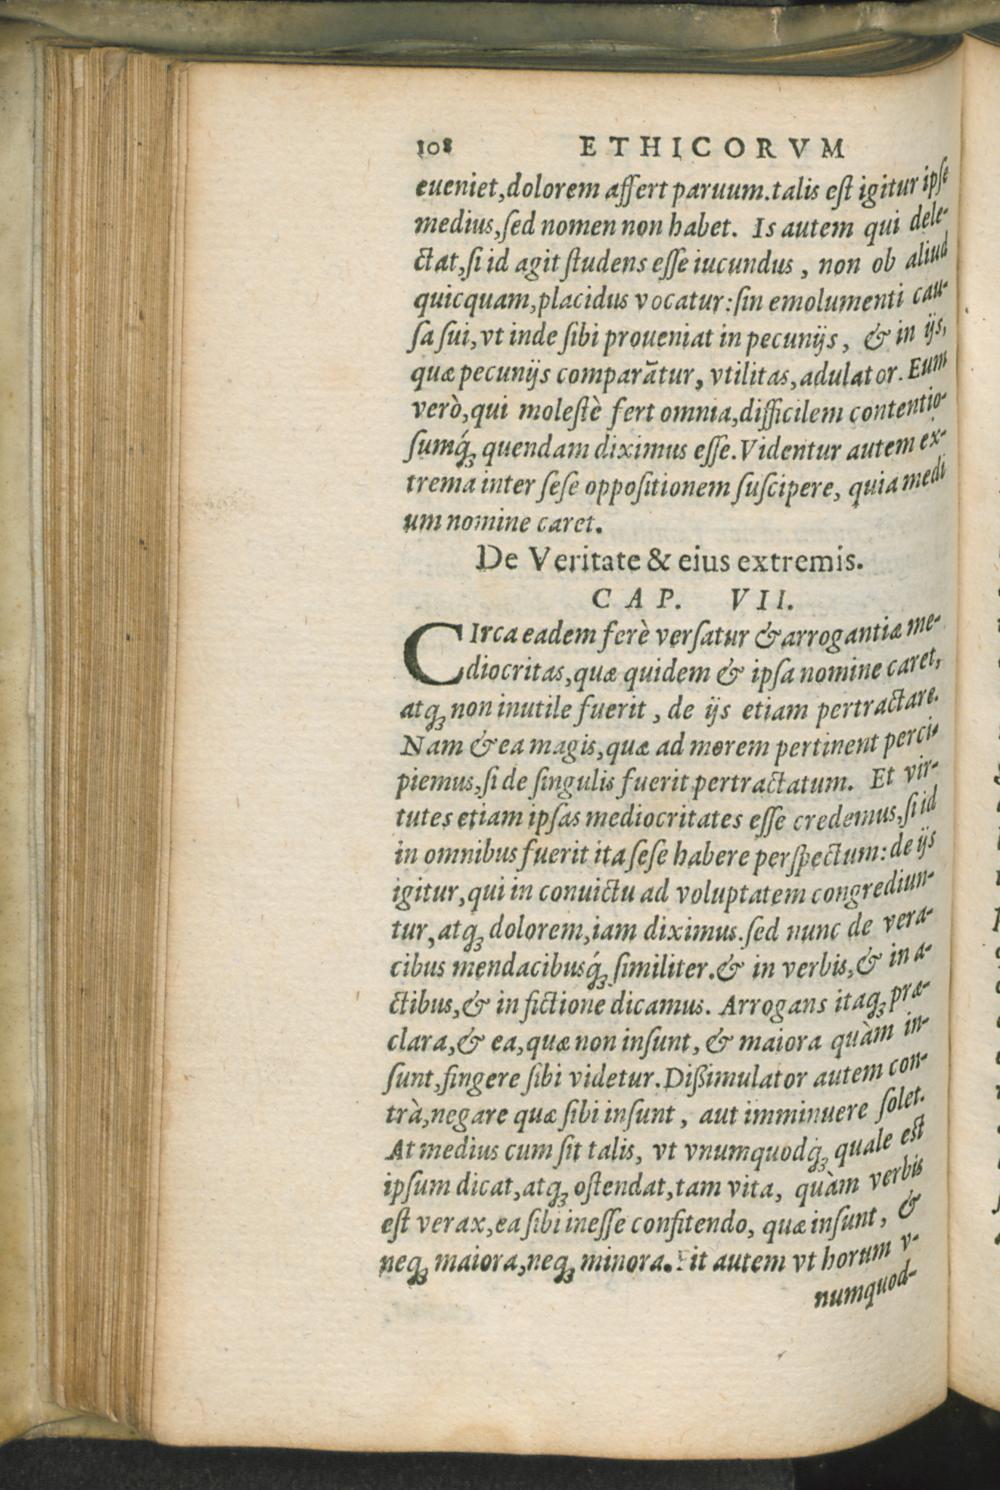 108 ETHICORVM
eueniet,dolorem affert paruum.talis est igitur ipse
medius,sed nomen non habet. Is autem qui dele-
ctat,si id agit studens esse iucundus, non ob aliud
quicquam,placidus vocatur:sin emolumenti cau-
sa sui,vt inde sibi proueniat in pecunijs, & in ijs,
quæ pecunijs comparātur, vtilitas,adulator. Eum
verò,qui molestè fert omnia,difficilem contentio-
sumq́; quendam diximus esse.Videntur autem ex-
trema inter sese oppositionem suscipere, quia medi
um nomine caret.
De Veritate & eius extremis.
CAP. VII.
CIrca eadem ferè versatur & arrogantiæ me-
diocritas,quæ quidem & ipsa nomine caret,
atq; non inutile fuerit, de ijs etiam pertractare.
Nam & ea magis,quæ ad morem pertinent perci-
piemus,si de singulis fuerit pertractatum. Et vir-
tutes etiam ipsas mediocritates esse credemus,si id
in omnibus fuerit ita sese habere perspectum:de ijs
igitur,qui in conuictu ad voluptatem congrediun-
tur,atq; dolorem,iam diximus.sed nunc de vera-
cibus mendacibusq́; similiter.& in verbis,& in a-
ctibus,& in fictione dicamus. Arrogans itaq; præ-
clara,& ea,quæ non insunt, & maiora quàm in-
sunt,fingere sibi videtur.Dißimulator autem con-
trà,negare quæ sibi insunt, aut imminuere solet.
At medius cum sit talis, vt vnumquodq́; quale est
ipsum dicat,atq; ostendat,tam vita, quàm verbis
est verax,ea sibi inesse confitendo, quæ insunt, &
neq; maiora,neq; minora. Fit autem vt horum v-
numquod-